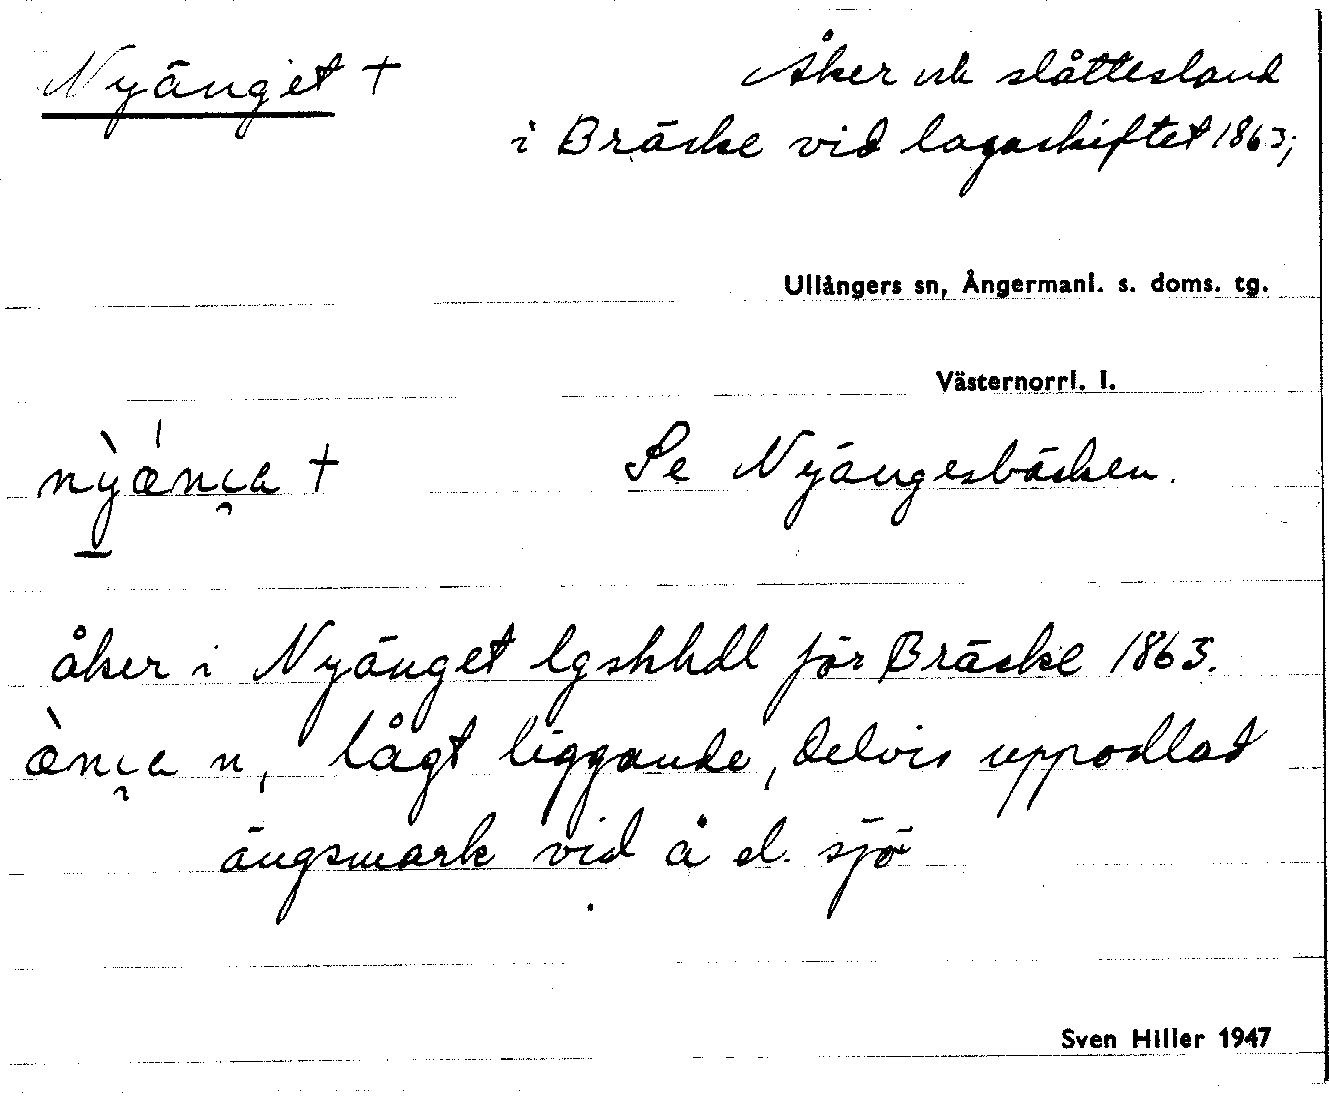 Nyänget † Åker och slåttesland
i Bräcke vid lagaskiftet 1863;
Ullångers sn, Ångermanl. s. doms. tg.
Västernorrl. l.
† Se Nyängesbäcken.
åker i Nyänget lgskhdl för Bräcke 1863.
n, lågt liggande, delvis uppodlad
ängsmark vid å el. sjö
Sven Hiller 1947